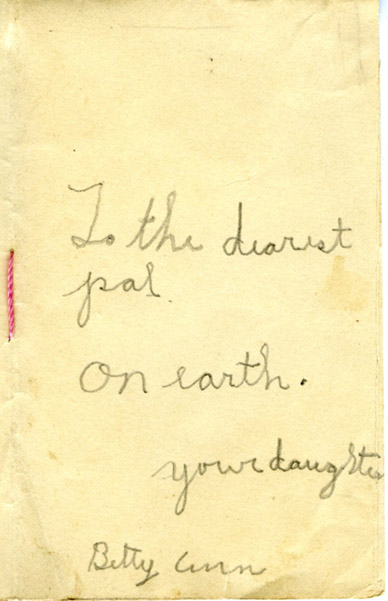 To the dearest
pal
On earth.
your daughter
Betty Ann